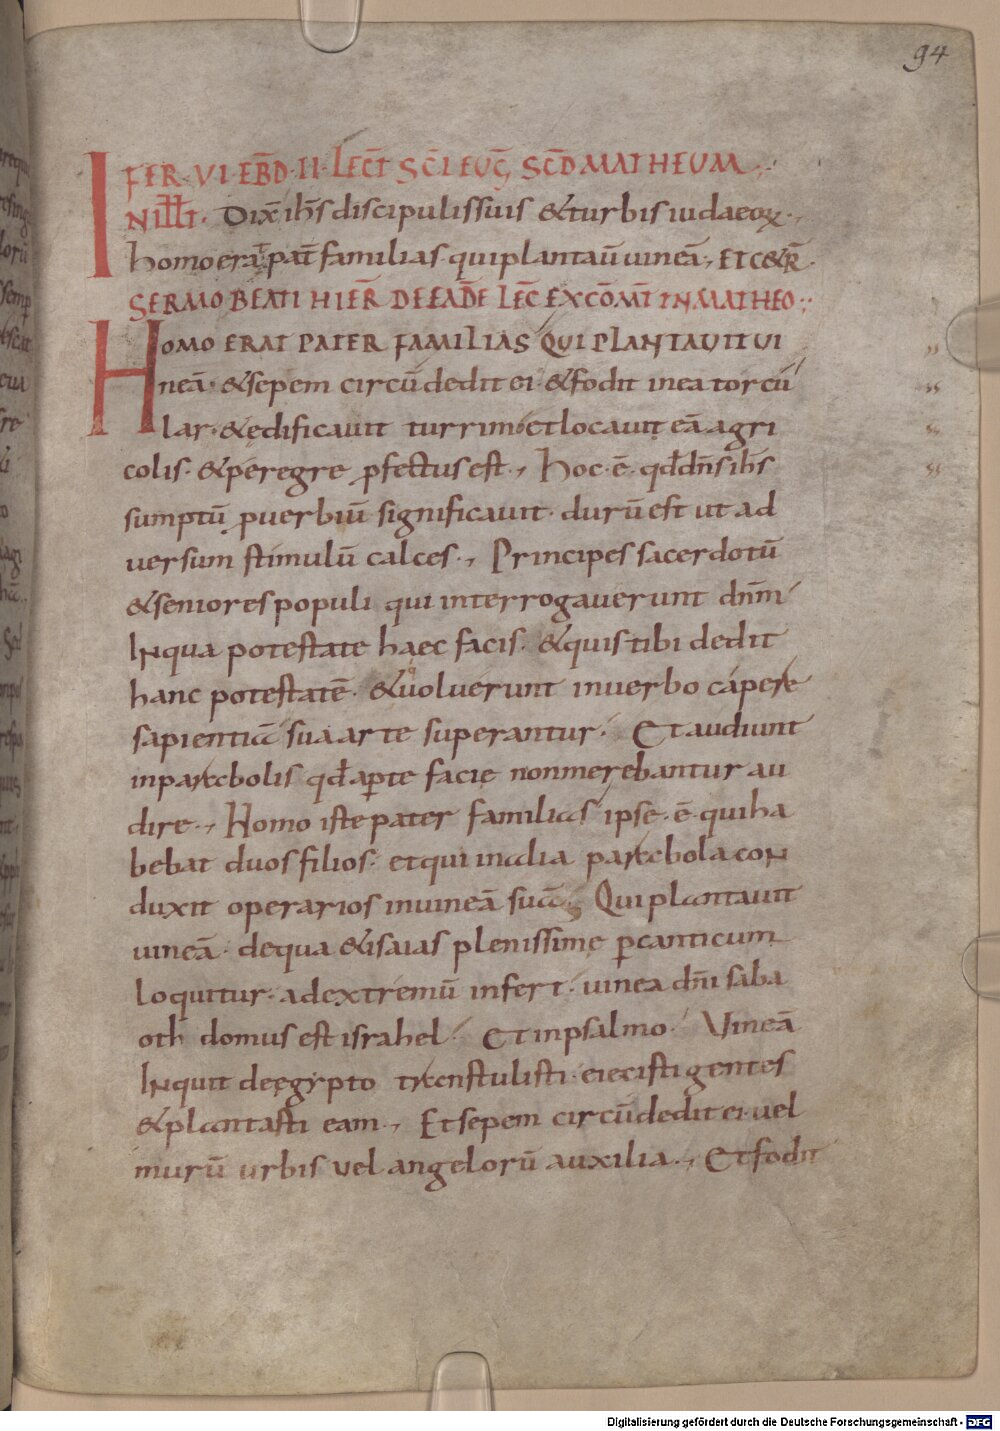 94
FER·VI·EBD·II·LECT SCI EUG SCD MATHEUM
IN ILLT· Dix ihs discipulis suis & turbis iudaeoꝝ·,
homo erat pat familias· qui plantaũ uineã·, ET C&R̃·
SERMO BEATI HIER̃ DE EADE LEC̃ EX COM̃T IN MATHEO:
HOMO ERAT PATER FAMILIAS QUI PLANTAVIT VI
neã· & sepem circũ dedit ei· & fodit in ea torcu
lar· & edificauit turrim· et locauit eã agri
colis· & peregre ꝓfectus est·, Hoc· ẽ· qđ dñs ihs
sumptũ ꝓuerbiũ significauit· durũ est ut ad
uersum stimulũ calces·, Principes sacerdotũ
& seniores populi qui interrogauerunt dnm̄
Inqua potestate haec facis· & quis tibi dedit
hanc potestatẽ· & uoluerunt in uerbo capere
sapientiã sua arte superantur· Et audiunt
in parabolis qđ aꝑte facie non merebantur au
dire·, Homo iste pater familias ipse· ẽ· qui ha
bebat duos filios· et qui in alia parabola con
duxit operarios in uineã suã· Qui plantauit
uineã· de qua & isaias plenissime ꝑ canticum
loquitur· ad extremũ infert· uinea dñi saba
oth domus est israhel· Et in psalmo· Vineã
Inquit de ęgypto transtulisti· eiecisti gentes
& plantasti eam·, Et sepem circũdedit ei· uel
murũ urbis vel angelorũ auxilia·, Et fodit
Digitalisierung gefördert durch die Deutsche Forschungsgemeinschaft - DFG